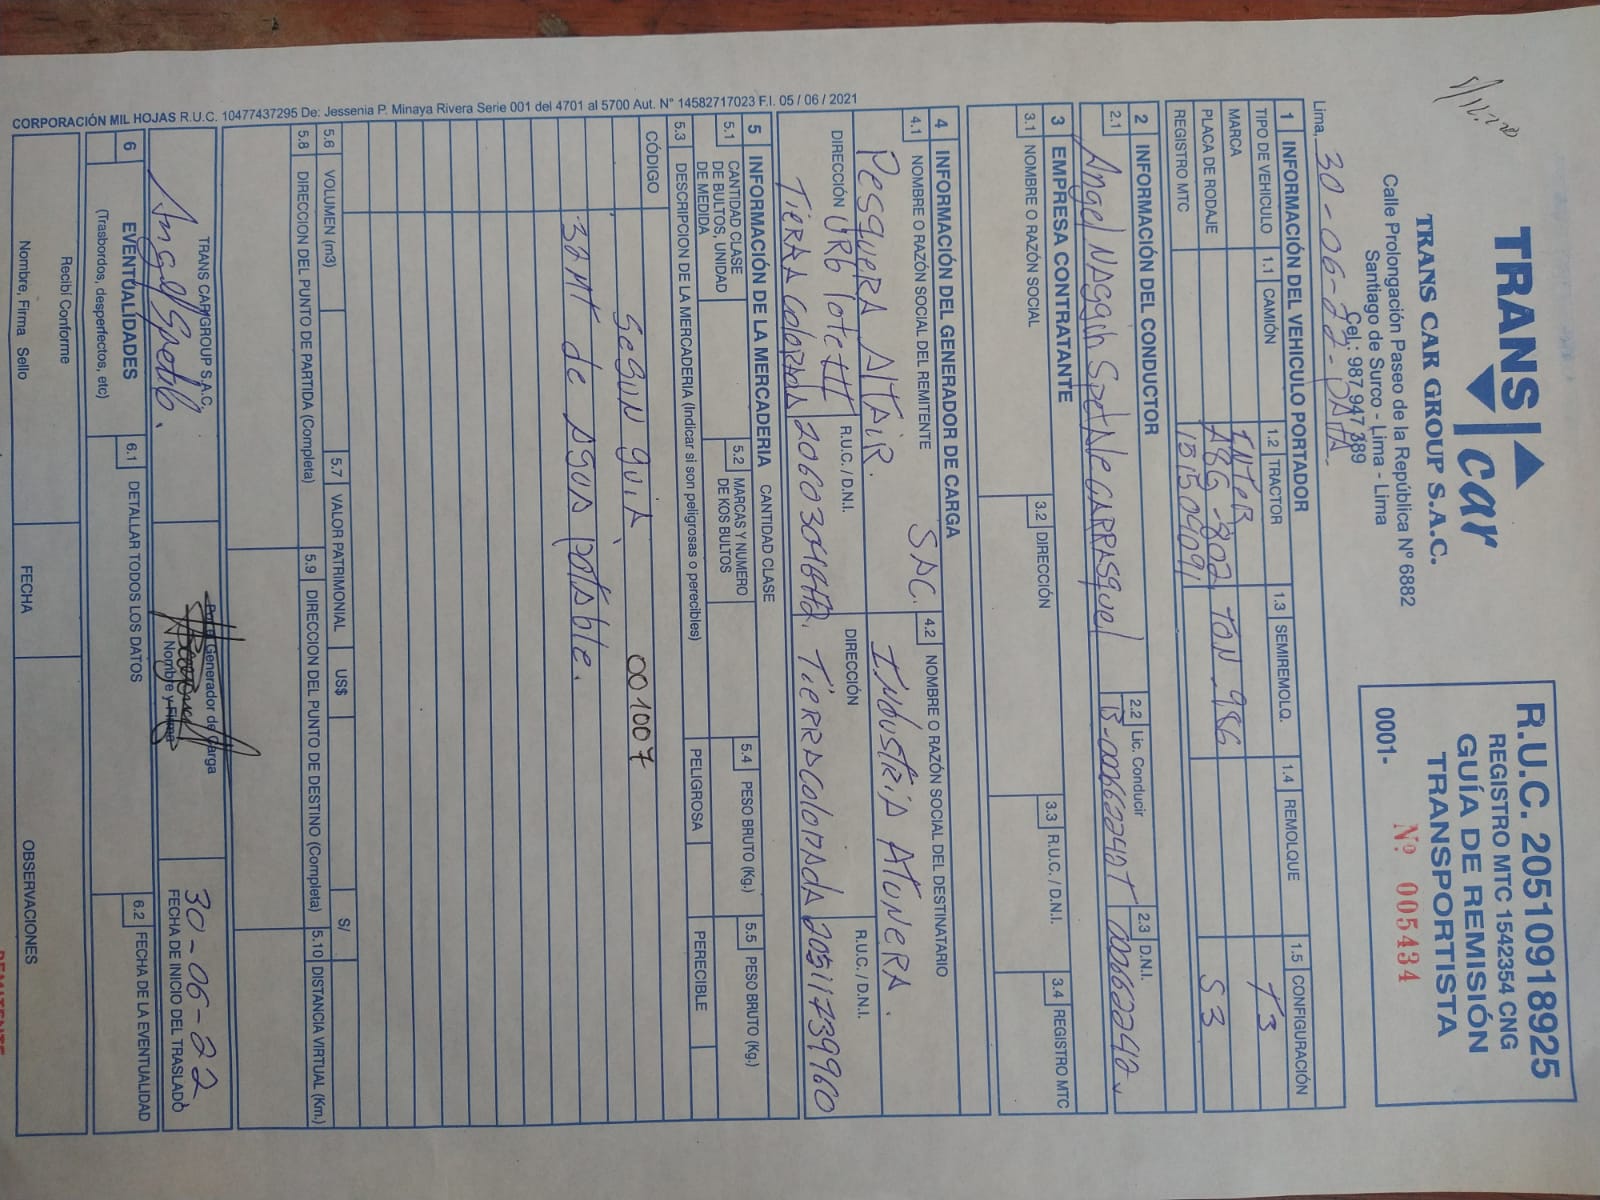 TRANS car
TRANS CAR GROUP S.A.C.
Calle Prolongación Paseo de la República Nº 6882
Santiago de Surco - Lima - Lima
Cel.: 987 947 389
R.U.C. 20510918925
REGISTRO MTC 1542354 CNG
GUÍA DE REMISIÓN
TRANSPORTISTA
0001- Nº 005434
Lima, 30-06-22-PAITA.
1 INFORMACIÓN DEL VEHICULO PORTADOR
TIPO DE VEHICULO 1.1 CAMIÓN 1.2 TRACTOR 1.3 SEMIREMOLQ. 1.4 REMOLQUE 1.5 CONFIGURACIÓN
MARCA INTER T3
PLACA DE RODAJE TON-986 S3
REGISTRO MTC
2 INFORMACIÓN DEL CONDUCTOR
2.1 Angel 2.2 Lic. Conducir 2.3 D.N.I.
3 EMPRESA CONTRATANTE
3.1 NOMBRE O RAZÓN SOCIAL 3.2 DIRECCIÓN 3.3 R.U.C. / D.N.I. 3.4 REGISTRO MTC
4 INFORMACIÓN DEL GENERADOR DE CARGA
4.1 NOMBRE O RAZÓN SOCIAL DEL REMITENTE 4.2 NOMBRE O RAZÓN SOCIAL DEL DESTINATARIO
PesquerA AltAir. SAC. Industria Atunera.
DIRECCIÓN URB R.U.C. / D.N.I. DIRECCIÓN R.U.C. / D.N.I.
TierrA ColorADA Tierra Colorada 20511739960
5 INFORMACIÓN DE LA MERCADERIA CANTIDAD CLASE
5.1 CANTIDAD CLASE DE BULTOS, UNIDAD DE MEDIDA 5.2 MARCAS Y NUMERO DE KOS BULTOS 5.4 PESO BRUTO (Kg.) 5.5 PESO BRUTO (Kg.)
5.3 DESCRIPCION DE LA MERCADERIA (Indicar si son peligrosas o perecibles) PELIGROSA PERECIBLE
CÓDIGO
Segun guia. 001007
32MT de agua potable.
5.6 VOLUMEN (m3) 5.7 VALOR PATRIMONIAL US$ S/
5.8 DIRECCION DEL PUNTO DE PARTIDA (Completa) 5.9 DIRECCION DEL PUNTO DE DESTINO (Completa) 5.10 DISTANCIA VIRTUAL (Km.)
TRANS CAR GROUP S.A.C. Generador de Carga 30-06-22
Nombre y Firma FECHA DE INICIO DEL TRASLADO
6 EVENTUALIDADES 6.1 DETALLAR TODOS LOS DATOS 6.2 FECHA DE LA EVENTUALIDAD
(Trasbordos, desperfectos, etc)
Recibí Conforme FECHA OBSERVACIONES
Nombre, Firma Sello
CORPORACIÓN MIL HOJAS R.U.C. 10477437295 De: Jessenia P. Minaya Rivera Serie 001 del 4701 al 5700 Aut. N° 14582717023 F.I. 05 / 06 / 2021